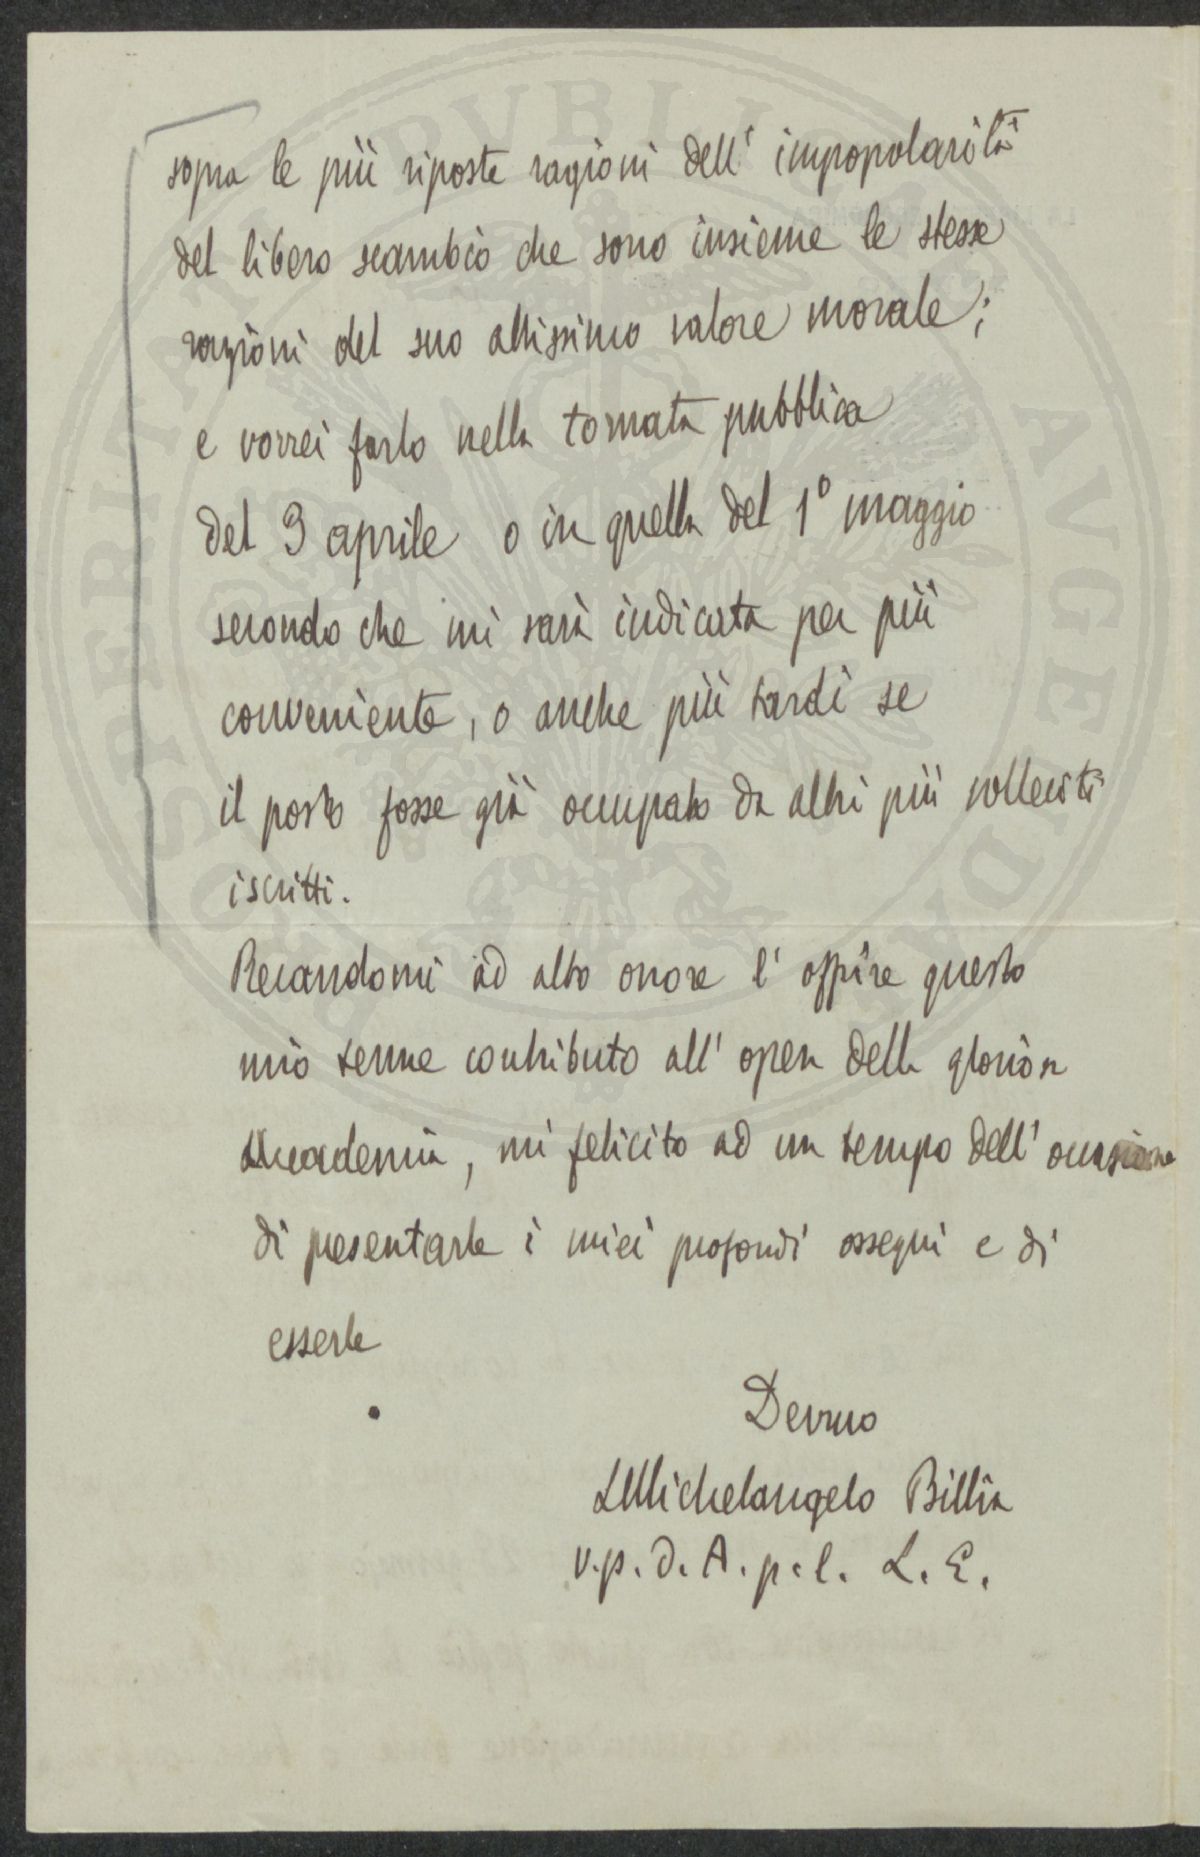 sopra le più riposte ragioni dell' impopolarità
del libero scambio che sono insieme le stesse
ragioni del suo altissimo valore morale;
e vorrei farlo nella tornata pubblica
del 3 aprile o in quella del 1º maggio
secondo che mi sarà indicata per più
conveniente, o anche più tardi se
il posto fosse già occupato da altri più solleciti
iscritti.
Recandomi ad alto onore l' offrire questo
mio tenue contributo all' opera della gloriosa
Accademia, mi felicito ad un tempo dell' occasione
di presentarle i miei profondi ossequi e di
esserle
Devmo
LMichelangelo Billia
v.p.d.A.p.l. L.E.
PROSPERITATI PVBLICAE AVGENDAE